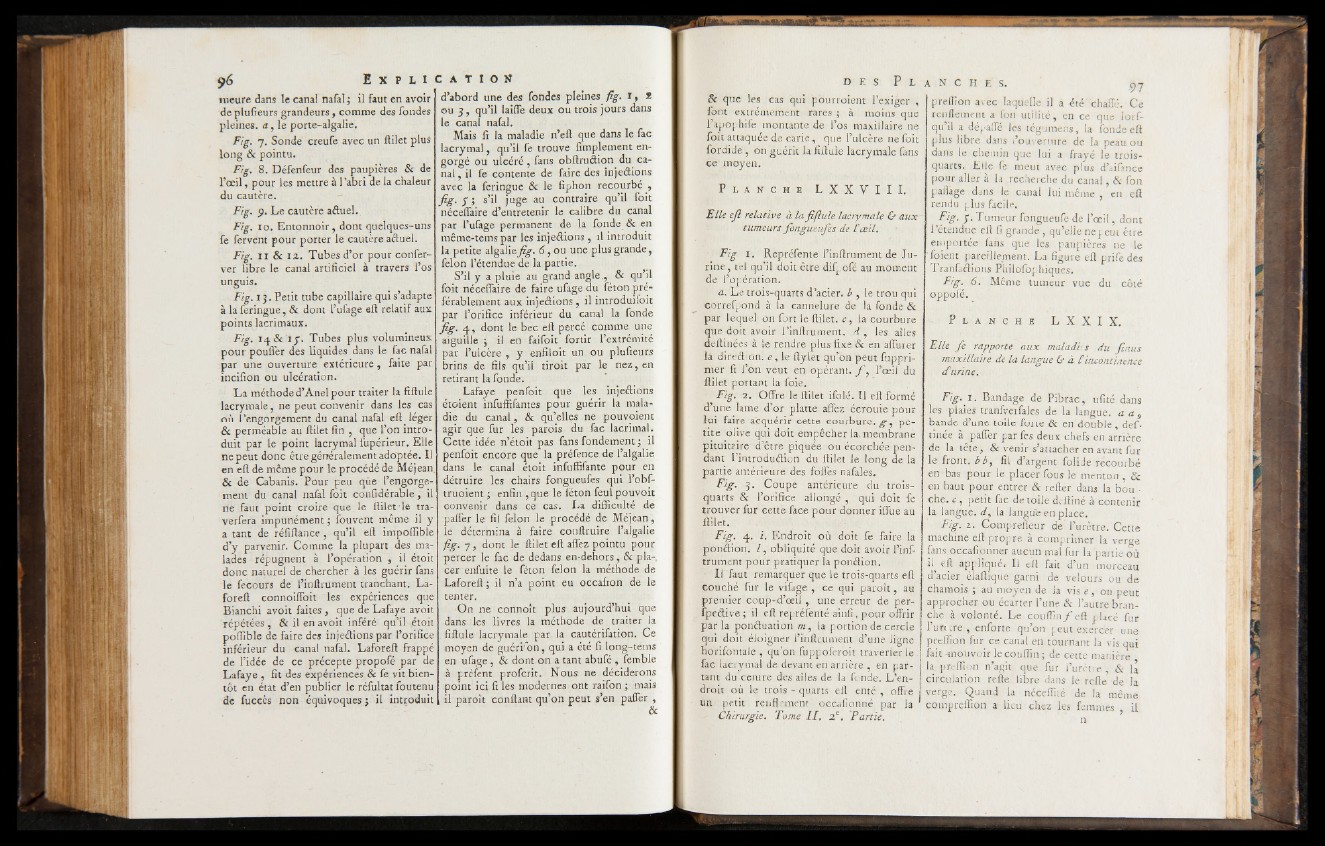 96 EXPLICATION
meure dans le canal nasal ; il faut en avoir
de plusieurs grandeurs, comme des sondes
pleines. a, le porte-algalie.
Fig. 7. Sonde creuse avec un stilet plus
long & pointu.
Fig. 8. Défenseur des paupières & de
l'œil, pour les mettre à l'abri de la chaleur
du cautère.
Fig. 9. Le cautère actuel.
Fig. 10. Entonnoir, dont quelques-uns
se servent pour porter le cautère actuel.
Fig. 11 & 12. Tubes d'or pour conser-
ver libre le canal artificiel à travers l'os
unguis.
Fig. 13. Petit tube capillaire qui s'adapte
à la seringue, & dont l'usage est relatif aux
points lacrimaux.
Fig. 14 & 15. Tubes plus volumineux
pour pousser des liquides dans le sac nasal
par une ouverture extérieure, faite par
incision ou ulcération.
La méthode d'Anel pour traiter la fistule
lacrymale, ne peut convenir dans les cas
où l'engorgement du canal nasal est léger
& perméable au stilet fin, que l'on intro-
duit par le point lacrymal supérieur. Elle
ne peut donc être généralement adoptée. Il
en est de même pour le procédé de Méjean
& de Cabanis. Pour peu que l'engorge-
ment du canal nasal soit considérable, il
ne faut point croire que le stilet le tra-
versera impunément ; souvent même il y
a tant de résistance, qu'il est impossible
d'y parvenir. Comme la plupart des ma-
lades répugnent à l'opération, il étoit
donc naturel de chercher à les guérir sans
le secours de l'instrument tranchant. La-
forest connoissoit les expériences que
Bianchi avoit faites, que de Lafaye avoit
répétées, & il en avoit inféré qu'il étoit
possible de faire des injections par l'orifice
inférieur du canal nasal. Laforest frappé
de l'idée de ce précepte proposé par de
Lafaye, fit des expériences & se vit bien-
tôt en état d'en publier le résultat soutenu
de succès non équivoques ; il introduit
d'abord une des sondes pleines fig. 1, 2
ou 3, qu'il laisse deux ou trois jours dans
le canal nasal.
Mais si la maladie n'est que dans le sac
lacrymal, qu'il se trouve simplement en-
gorgé ou ulcéré, sans obstruction du ca-
nal, il se contente de faire des injections
avec la seringue & le siphon recourbé,
fig. 5 ; s'il juge au contraire qu'il soit
nécessaire d'entretenir le calibre du canal
par l'usage permanent de la sonde & en
même-tems par les injections, il introduit
la petite algalie fig. 6, ou une plus grande,
selon l'étendue de la partie.
S'il y a pluie au grand angle, & qu'il
soit nécessaire de faire usage du séton pré-
férablement aux injections, il introduisoit
par l'orifice inférieur du canal la sonde
fig. 4, dont le bec est percé comme une
aiguille ; il en faisoit sortir l'extrémité
par l'ulcère, y enfiloit un ou plusieurs
brins de fils qu'il tiroit par le nez, en
retirant la sonde.
Lafaye pensoit que les injections
étoient insuffisantes pour guérir la mala-
die du canal, & qu'elles ne pouvoient
agir que sur les parois du sac lacrimal.
Cette idée n'étoit pas sans fondement ; il
pensoit encore que la présence de l'algalie
dans le canal étoit insuffisante pour en
détruire les chairs fongueuses qui l'obs-
truoient ; enfin, que le séton seul pouvoit
convenir dans ce cas. La difficulté de
passer le fil selon le procédé de Méjean,
le détermina à faire construire l'algalie
fig. 7, dont le stilet est assez pointu pour
percer le sac de dedans en-dehors, & pla-
cer ensuite le séton selon la méthode de
Laforest ; il n'a point eu occasion de le
tenter.
On ne connoît plus aujourd'hui que
dans les livres la méthode de traiter la
fistule lacrymale par la cautérisation. Ce
moyen de guérison, qui a été si long-tems
en usage, & dont on a tant abusé, semble
à présent proscrit. Nous ne déciderons
point ici si les modernes ont raison ; mais
il paroît constant qu'on peut s'en passer,
&
DES PLANCHES. 97
& que les cas qui pourroient l'exiger,
sont extrêmement rares ; à moins que
l'apophise montante de l'os maxillaire ne
soit attaquée de carie, que l'ulcère ne soit
sordide, on guérit la fistule lacrymale sans
ce moyen.
PLANCHE LXXVIII.
Elle est relative à la fistule lacrymale & aux
tumeurs fongueuses de l'œil.
Fig 1. Représente l'instrument de Ju-
rine, tel qu'il doit être disposé au moment
de l'opération.
a. Le trois-quarts d'acier. b, le trou qui
correspond à la cannelure de la sonde &
par lequel on sort le stilet. c, la courbure
que doit avoir l'instrument. d, les ailes
destinées à le rendre plus fixe & en assurer
la direction. e, le stylet qu'on peut suppri-
mer si l'on veut en opérant. f, l'œil du
stilet portant la soie.
Fig. 2. Offre le stilet isolé. Il est formé
d'une lame d'or platte assez écrouie pour
lui faire acquérir cette courbure. g, pe-
tite olive qui doit empêcher la membrane
pituitaire d'être piquée ou écorchée pen-
dant l'introduction du stilet le long de la
partie antérieure des fosses nasales.
Fig. 3. Coupe antérieure du trois-
quarts & l'orifice allongé, qui doit se
trouver sur cette face pour donner issue au
stilet.
Fig. 4. i. Endroit où doit se faire la
ponction. l, obliquité que doit avoir l'ins-
trument pour pratiquer la ponction.
Il faut remarquer que le trois-quarts est
couché sur le visage, ce qui paroît, au
premier coup-d'œil, une erreur de pers-
pective ; il est représenté ainsi, pour offrir
par la ponctuation m, la portion de cercle
qui doit éloigner l'instrument d'une ligne
horisontale, qu'on supposeroit traverser le
sac lacrymal de devant en arrière, en par-
tant du centre des ailes de la sonde. L'en-
droit où le trois-quarts est enté, offre
un petit renflement occasionné par la
Chirurgie. Tome II. 2e. Partie.
pression avec laquelle il a été chassé. Ce
renflement a son utilité, en ce que lors-
qu'il a dépassé les tégumens, la sonde est
plus libre dans l'ouverture de la peau ou
dans le chemin que lui a frayé le trois-
quarts. Elle se meut avec plus d'aisance
pour aller à la recherche du canal, & son
passage dans le canal lui même, en est
rendu plus facile.
Fig. 5. Tumeur fongueuse de l'œil, dont
l'étendue est si grande, qu'elle ne peut être
emportée sans que les paupières ne le
soient pareillement. La figure est prise des
Transactions Philosophiques.
Fig. 6. Même tumeur vue du côté
opposé.
PLANCHE LXXIX.
Elle se rapporte aux maladies du sinus
maxillaire de la langue & à l'incontinence
d'urine.
Fig. 1. Bandage de Pibrac, usité dans
les plaies transversales de la langue. a a,
bande d'une toile forte & en double, des-
tinée à passer par ses deux chefs en arrière
de la tête, & venir s'attacher en avant sur
le front. b b, fil d'argent solide recourbé
en bas pour le placer sous le menton, &
en haut pour entrer & rester dans la bou-
che. c, petit sac de toile destiné à contenir
la langue. d, la langue en place.
Fig. 2. Compresseur de l'urètre. Cette
machine est propre à comprimer la verge
sans occasionner aucun mal sur la partie où
il est appliqué. Il est fait d'un morceau
d'acier élastique garni de velours ou de
chamois ; au moyen de la vis e, on peut
approcher ou écarter l'une & l'autre bran-
che à volonté. Le coussin f est placé sur
l'urètre, ensorte qu'on peut exercer une
pression sur ce canal en tournant la vis qui
fait mouvoir le coussin ; de cette manière,
la pression n'agit que sur l'urètre, & la
circulation reste libre dans le reste de la
verge. Quand la nécessité de la même
compression a lieu chez les femmes, il
n